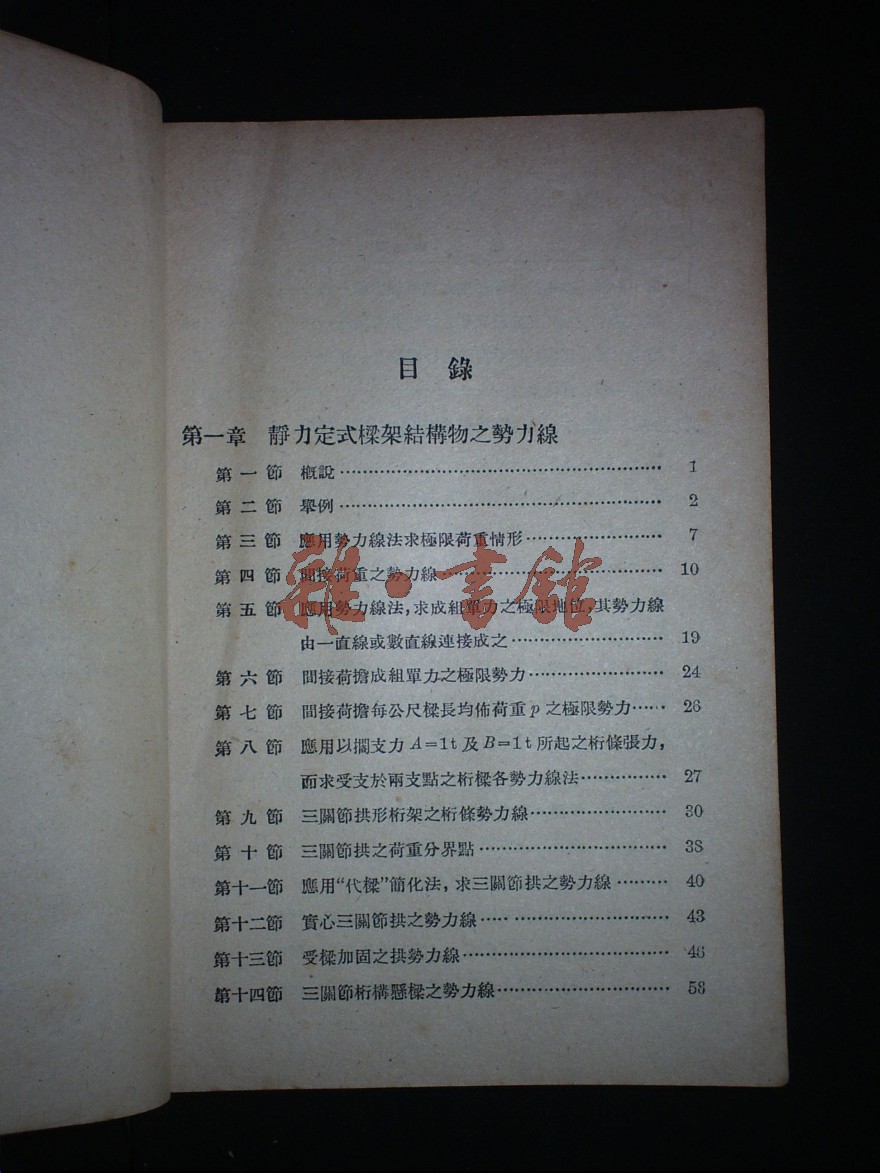 目錄
第一章 靜力定式樑架結構物之勢力線
第一節 概說 1
第二節 舉例 2
第三節 應用勢力線法求極限荷重情形 7
第四節 間接荷重之勢力線 10
第五節 應用勢力線法,求成組單力之極限地位,其勢力線
由一直線或數直線連接成之 19
第六節 間接荷擔成組單力之極限勢力 24
第七節 間接荷擔每公尺樑長均佈荷重p之極限勢力 26
第八節 應用以擱支力A=1t及B=1t所起之桁條張力,
而求受支於兩支點之桁樑各勢力線法 27
第九節 三關節拱形桁架之桁條勢力線 30
第十節 三關節拱之荷重分界點 38
第十一節 應用“代樑”簡化法,求三關節拱之勢力線 40
第十二節 實心三關節拱之勢力線 43
第十三節 受樑加固之拱勢力線 46
第十四節 三關節桁構懸樑之勢力線 58
雜·書館